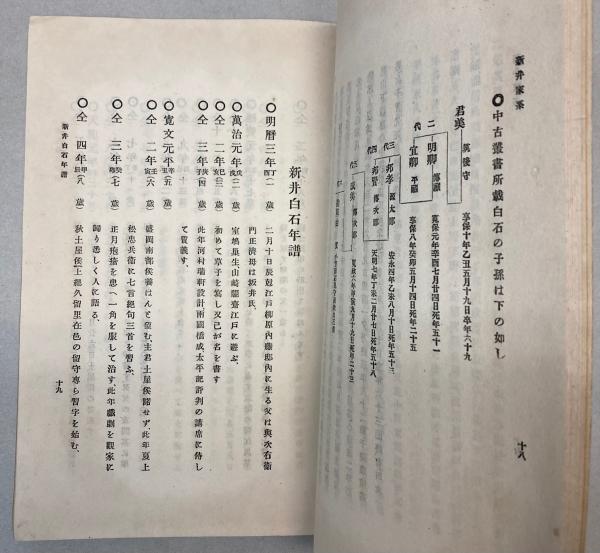 新井家系
〇中古叢書所載白石の子孫は下の如し
君美 筑後守 享保十年乙丑五月十九日卒年六十九
二代
明卿 傳藏 寬保元年辛酉七月廿四日死年五十一
宜卿 平藏 享保八年癸卯五月十四日死年二十五
三代
邦孝 源太郎 安永四年乙未八月十四日死年五十三
四代
邦賢 傳次郎 天明七年丁未二月廿七日死年五十八
成美 傳次郎
十八
新井白石年譜
〇明曆三年(丁酉一歲) 二月十日辰尅江戶柳原內藤邸內に生る父は與次右衞
門正濟母は坂井氏、
〇萬治元年(戊戌二歲) 室鳩巢生、山崎闇齋江戶に遊ぶ、
〇仝 二年(己亥三歲) 初めて草子を寫し又己が名を書す
〇仝 三年(庚子四歲) 此年河村瑞軒設計兩國橋成太平記評判の講席に侍し
て質義す、
〇寬文元年(辛丑五歲)
〇仝 二年(壬寅六歲) 盛岡南部侯養はんと望む、主君土屋侯諾せず、此年夏上
松忠兵衞に七言絕句三首を習ふ、
〇仝 三年(癸卯七歲) 正月疱瘡を患へ一角を服して治す、此年戲劇を觀家に
歸り悉しく人に語る、
〇仝 四年(甲辰八歲) 秋土屋侯上總久留里在邑の留守專ら習字を始む、
新井白石年譜
十九